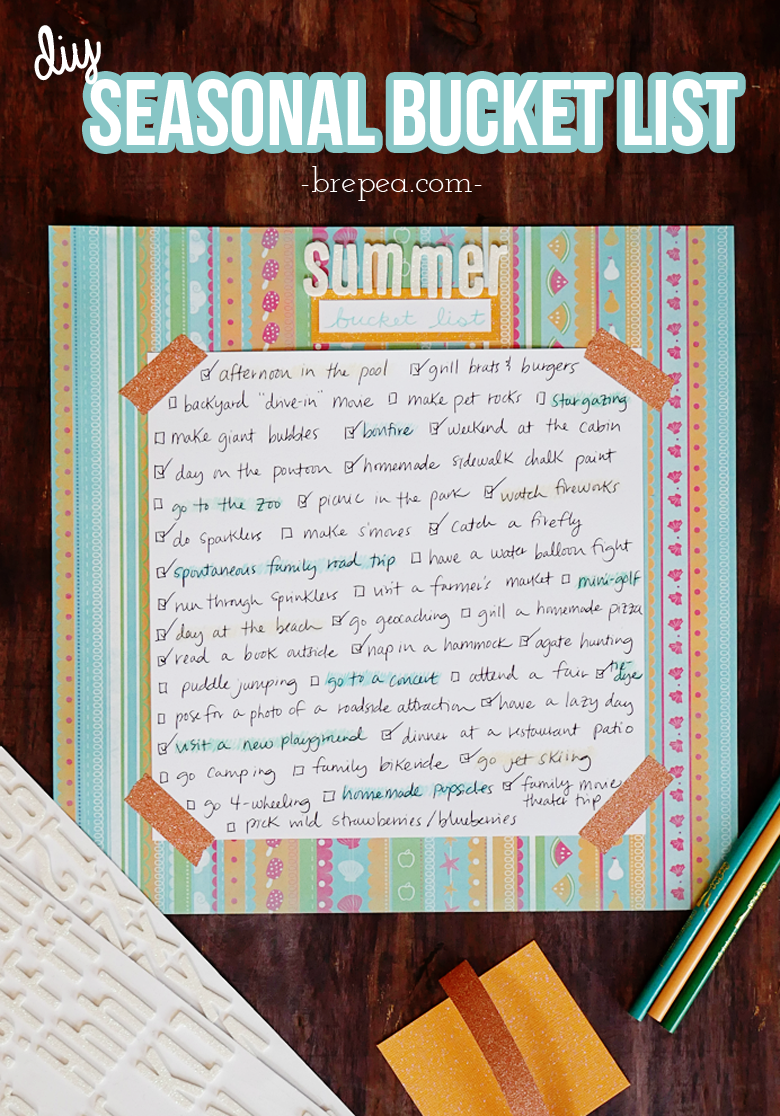 diy
SEASONAL BUCKET LIST
-brepea.com-
summer
bucket list
afternoon in the pool grill brats & burgers
backyard "drive-in" movie make pet rocks stargazing
make giant bubbles bonfire weekend at the cabin
day on the pontoon homemade sidewalk chalk paint
go to the zoo picnic in the park watch fireworks
do sparklers make s'mores catch a firefly
spontaneous family road trip have a water balloon fight
run through sprinklers visit a farmer's market mini-golf
day at the beach go geocaching grill a homemade pizza
read a book outside nap in a hammock agate hunting
puddle jumping go to a concert attend a fair tie-dye
pose for a photo of a roadside attraction have a lazy day
visit a new playground dinner at a restaurant patio
go camping family bikeride go jet skiing
go 4-wheeling homemade popsicles family movie theater trip
pick wild strawberries/blueberries